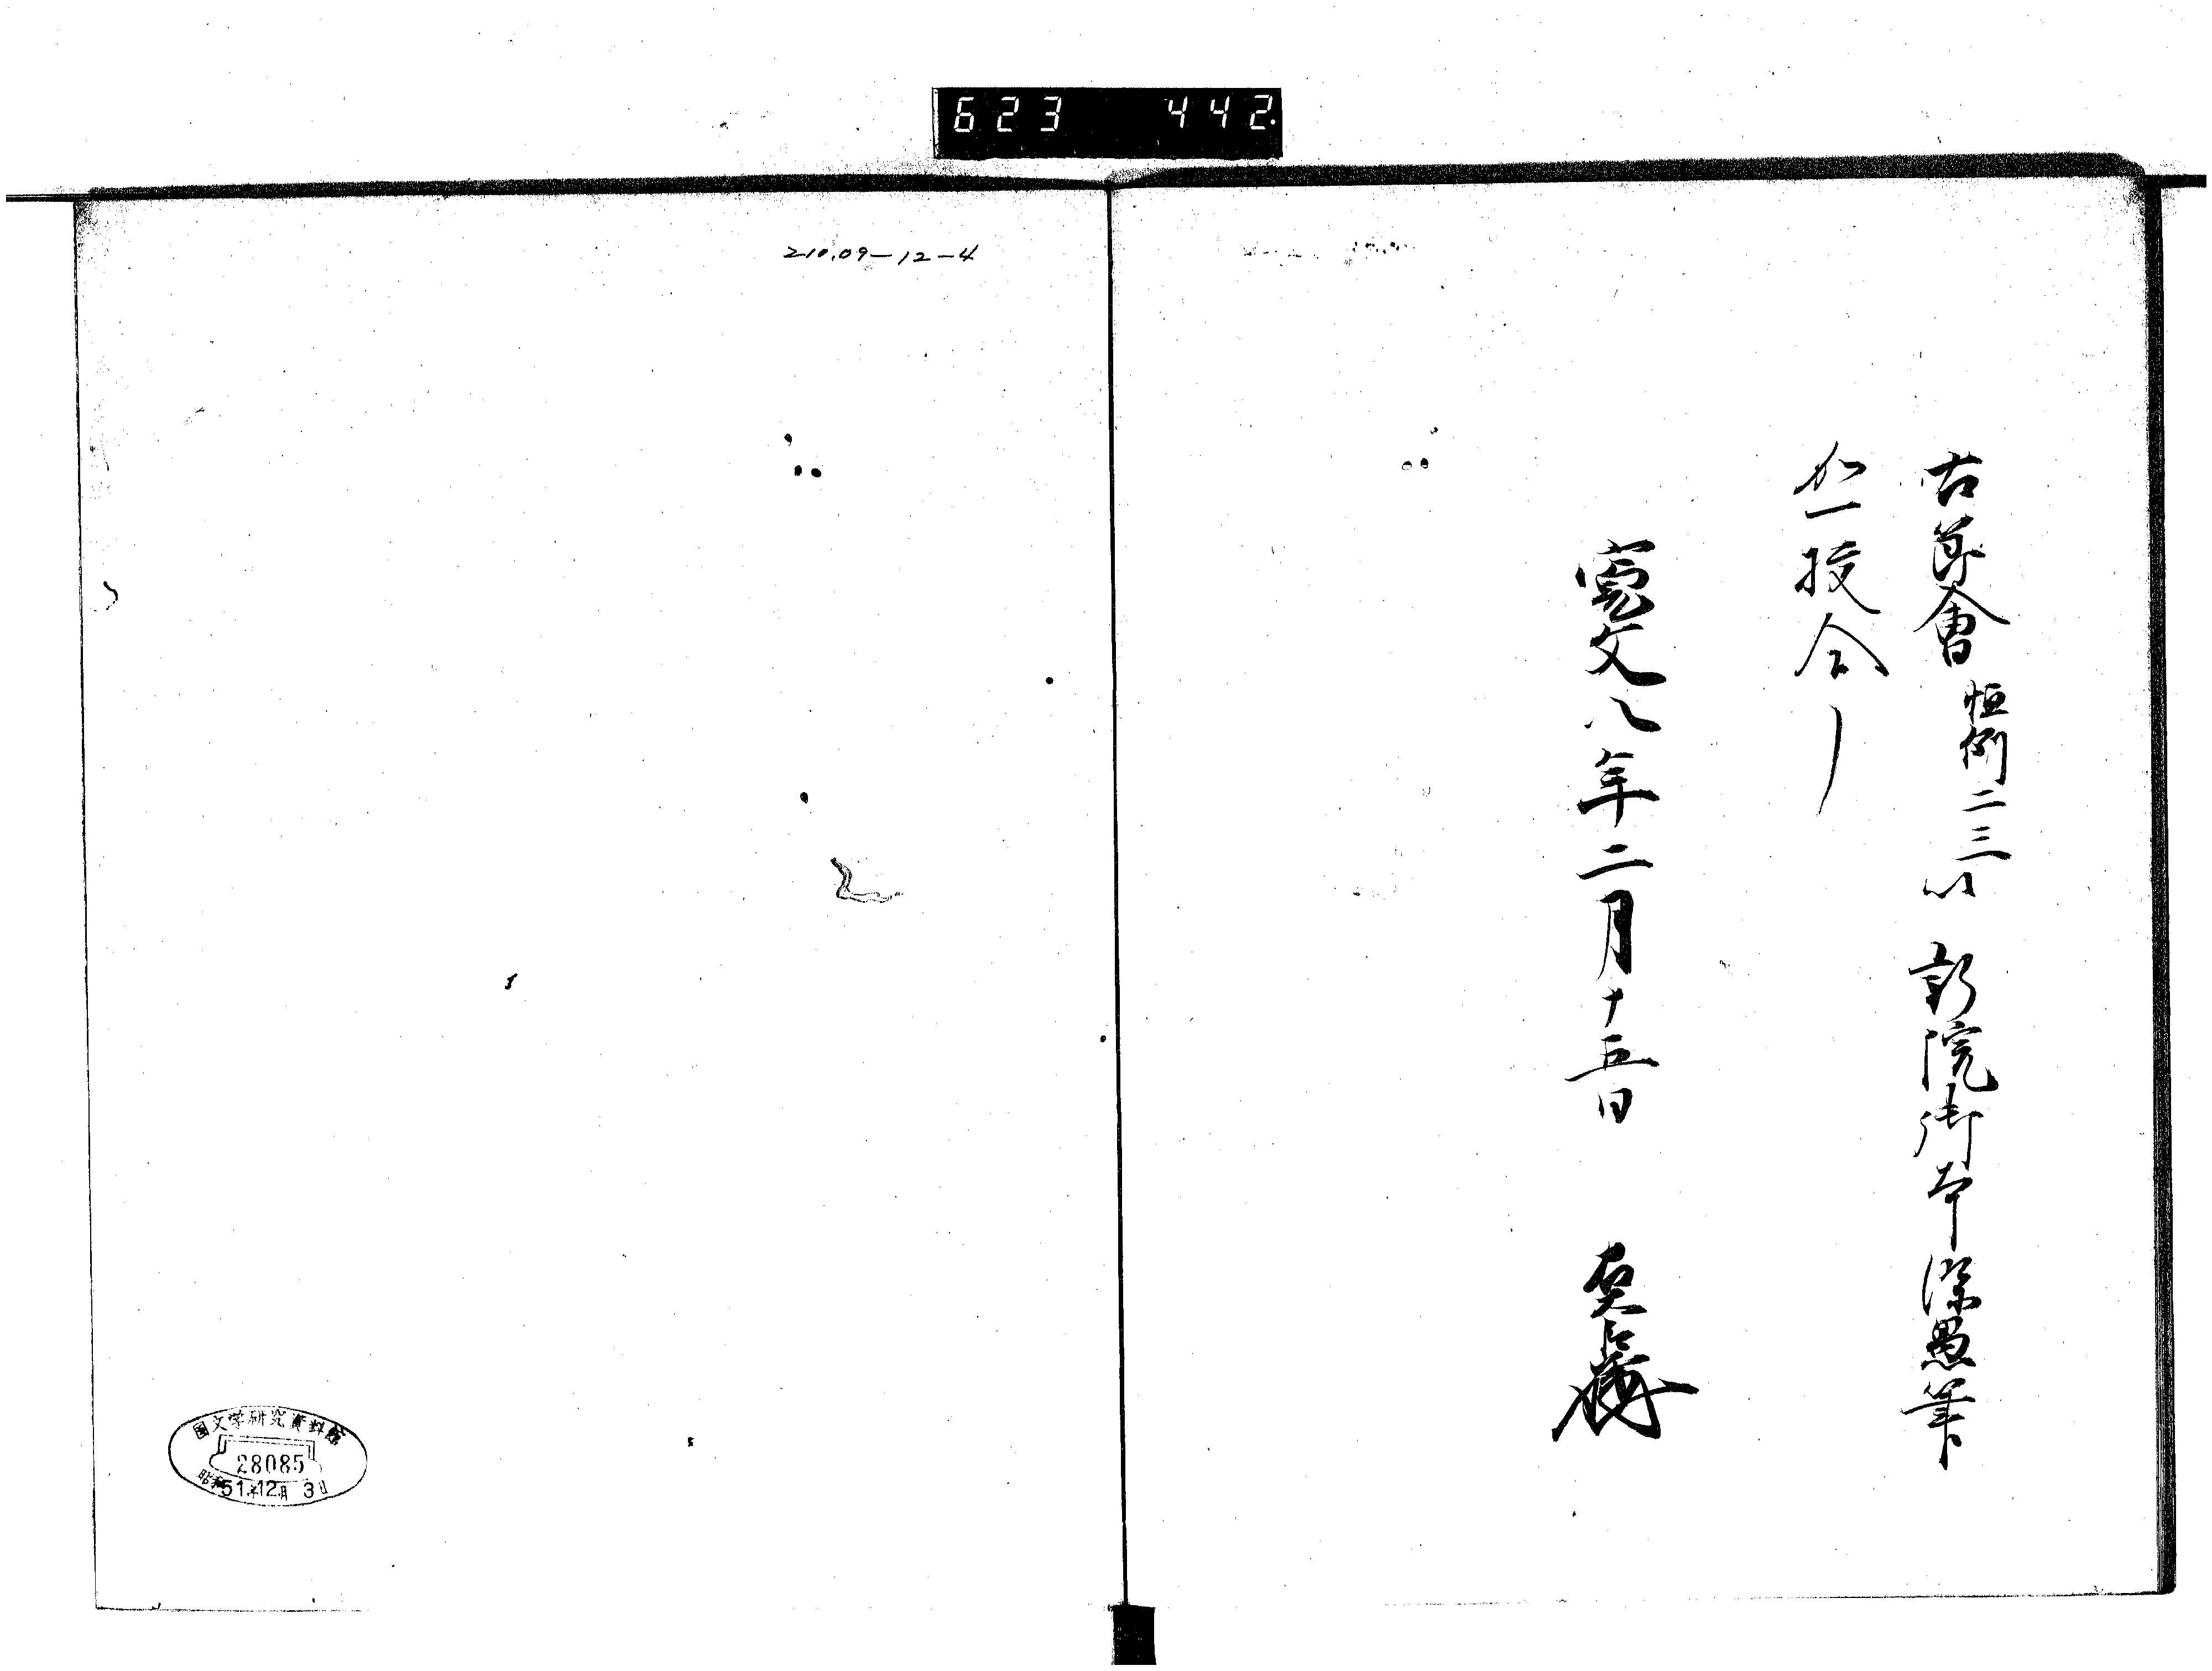 623 442
右節會恒例二三以 新院御本染愚筆
加一挍合了
寛文八年二月十五日
210.09-12-4
国文学研究資料館
28085
昭和51年12月3日